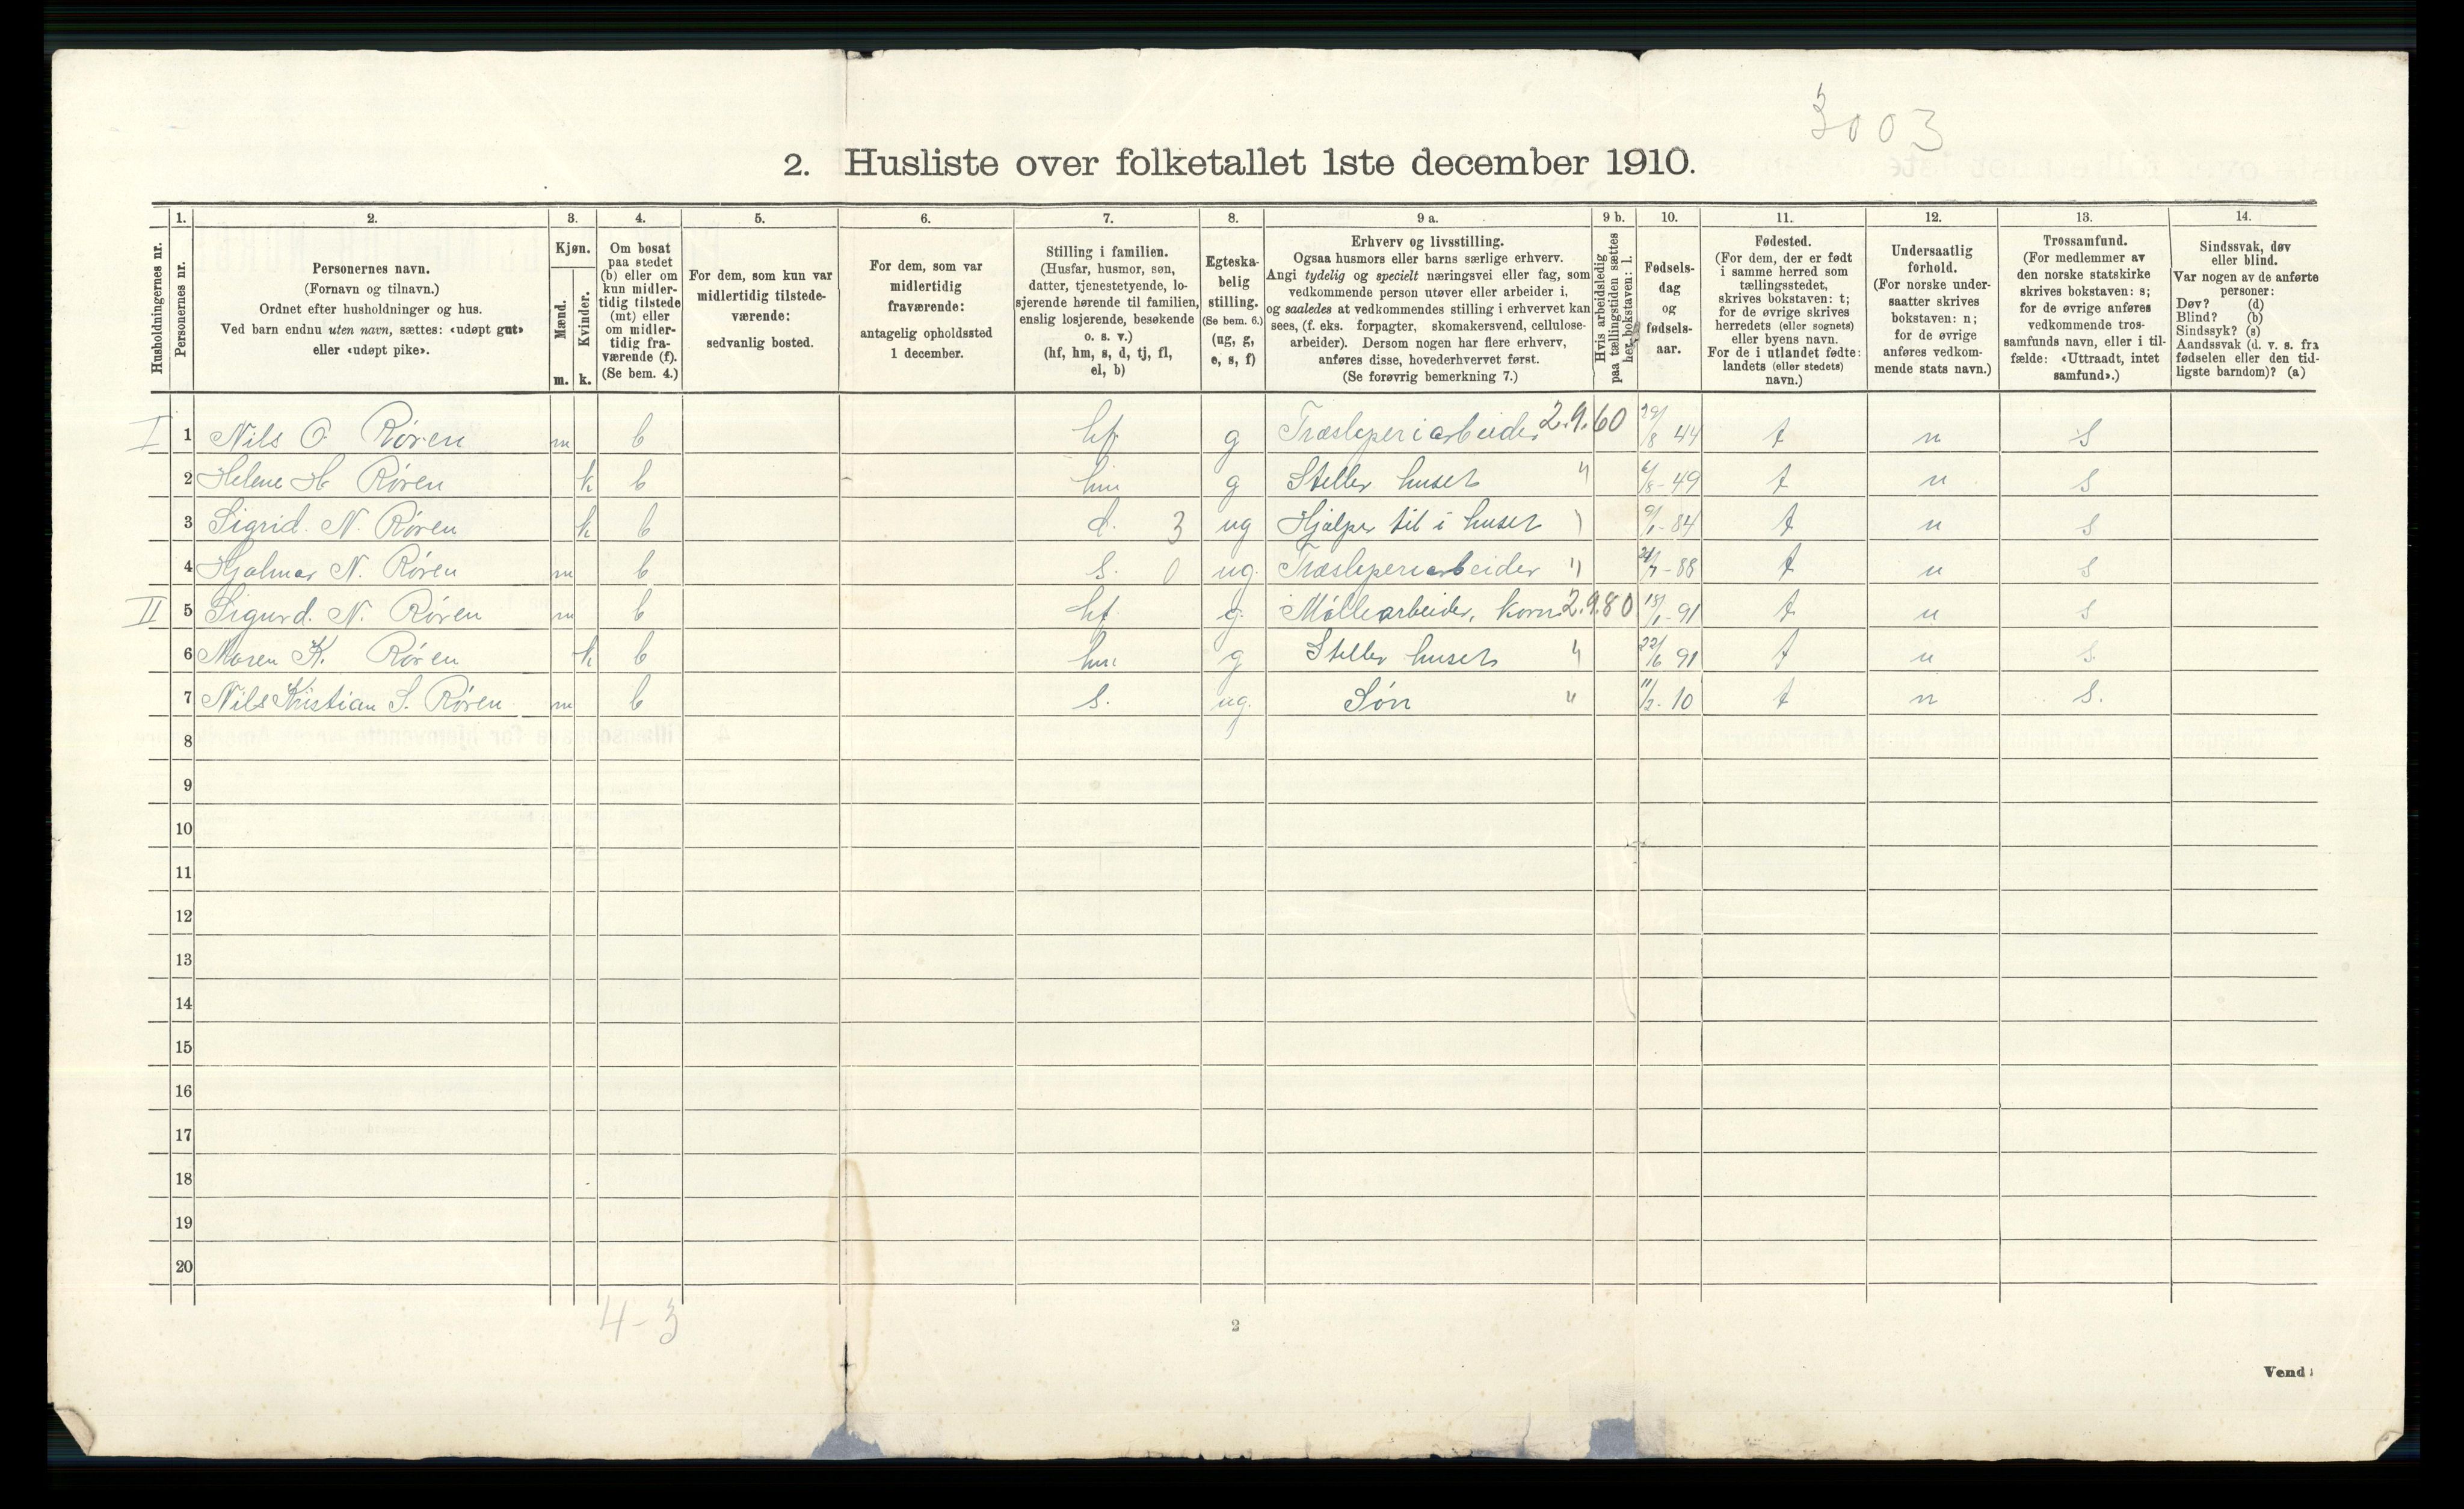 3003
2. Husliste over folketallet 1ste december 1910.
Husholdningernes nr.
1.
Personernes nr.
2.
Personernes navn.
(Fornavn og tilnavn.)
Ordnet efter husholdninger og hus.
Ved barn endnu uten navn, sættes: «udøpt gut»
eller «udøpt pike».
3.
Kjøn.
Mænd.
m.
Kvinder.
k.
4.
Om bosat
paa stedet
(b) eller om
kun midler-
tidig tilstede
(mt) eller
om midler-
tidig fra-
værende (f).
(Se bem. 4.)
5.
For dem, som kun var
midlertidig tilstede-
værende:
sedvanlig bosted.
6.
For dem, som var
midlertidig
fraværende:
antagelig opholdssted
1 december.
7.
Stilling i familien.
(Husfar, husmor, søn,
datter, tjenestetyende, lo-
sjerende hørende til familien,
enslig losjerende, besøkende
o. s. v.)
(hf, hm, s, d, tj, fl,
el, b)
8.
Egteska-
belig
stilling.
(Se bem. 6.)
(ug, g,
e, s, f)
9 a.
Erhverv og livsstilling.
Ogsaa husmors eller barns særlige erhverv.
Angi tydelig og specielt næringsvei eller fag, som
vedkommende person utøver eller arbeider i,
og saaledes at vedkommendes stilling i erhvervet kan
sees, (f. eks. forpagter, skomakersvend, cellulose-
arbeider). Dersom nogen har flere erhverv,
anføres disse, hovederhvervet først.
(Se forøvrig bemerkning 7.)
9 b.
Hvis arbeidsledig
paa tællingstiden sættes
her bokstaven: l.
10.
Fødsels-
dag
og
fødsels-
aar.
11.
Fødested.
(For dem, der er født
i samme herred som
tællingsstedet,
skrives bokstaven: t;
for de øvrige skrives
herredets (eller sognets)
eller byens navn.
For de i utlandet fødte:
landets (eller stedets)
navn.)
12.
Undersaatlig
forhold.
(For norske under-
saatter skrives
bokstaven: n;
for de øvrige
anføres vedkom-
mende stats navn.)
13.
Trossamfund.
(For medlemmer av
den norske statskirke
skrives bokstaven: s;
for de øvrige anføres
vedkommende tros-
samfunds navn, eller i til-
fælde: «Uttraadt, intet
samfund».)
14.
Sindssvak, døv
eller blind.
Var nogen av de anførte
personer:
Døv? (d)
Blind? (b)
Sindssyk? (s)
Aandssvak (d. v. s. fra
fødselen eller den tid-
ligste barndom)? (a)
I 1 Nils O Røren m b hf g Træsliperiarbeider 2.9.60 29/8 44 t n s
2 Helene H Røren k b hm g Steller huset " 6/8-49 t n s
3 Sigrid. N. Røren k b d. 3 ug Hjælper til i huset " 9/1-84 t n s
4 Hjalmar N. Røren m b s. 0 ug. Træsliperiarbeider " 21/7-88 t n s
II 5 Sigurd. N. Røren m b hf g. Møllearbeider, korn 2.9.80 18/1-91 t n s
6 Maren K. Røren k b hm g Steller huset " 22/6 91 t n s
7 Nils Kristian S. Røren m b s. ug. Søn " 11/2-10 t n s.
8
9
10
11
12
13
14
15
16
17
18
19
20
4-3
2
Vend!